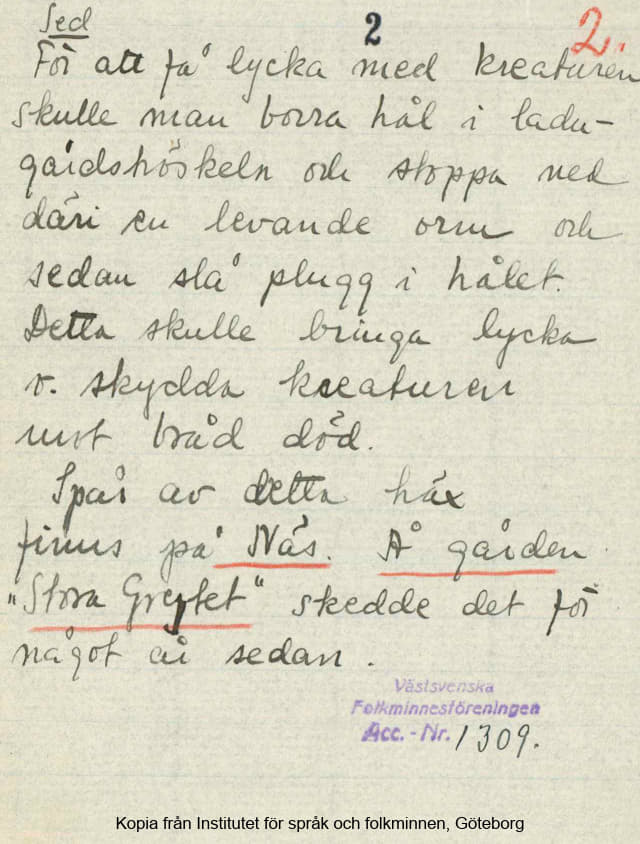 Sed
2
2.
För att få lycka med kreaturen
skulle man borra hål i ladu-
gårdströskeln och stoppa ned
däri en levande orm och
sedan slå plugg i hålet.
Detta skulle bringa lycka
o. skydda kreaturen
mot bråd död.
Spår av detta häx
finns på Näs. Å gården
"Stora Greylet" skedde det för
något år sedan.
Västsvenska
Folkminnesföreningen
Acc.-Nr. 1309.
Kopia från Institutet för språk och folkminnen, Göteborg